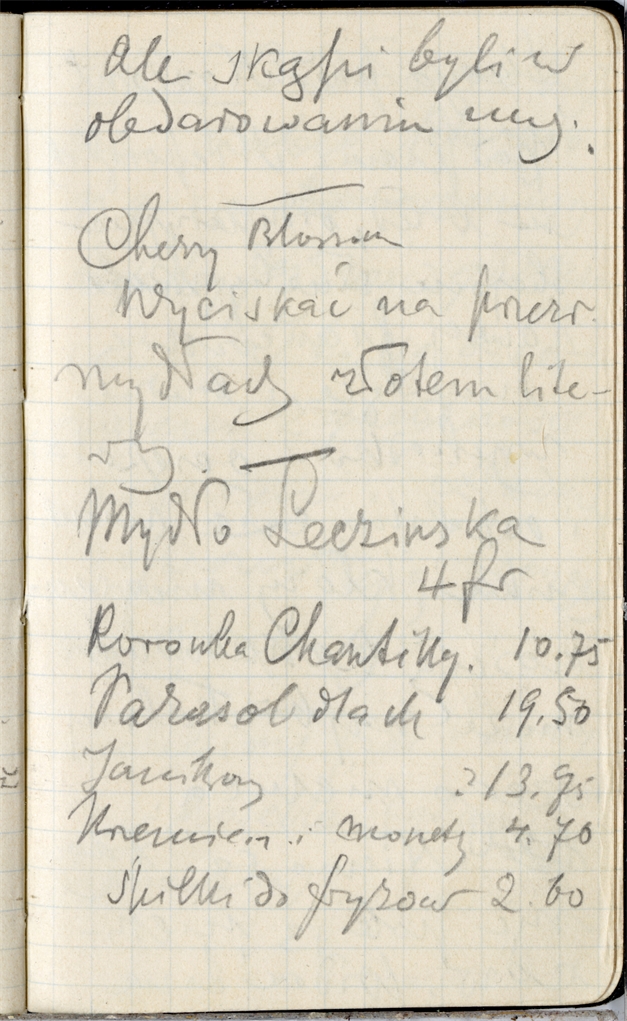 Ale skąpi byli w
obdarowaniu
Cherry Blossom
Wyciskać na przezr.
mydłach złotem lite-
ry.
Mydło Leczinska
4 fr
Koronka Chantilly. 10.75
Parasol dla ch 19.50
? 13.95
Krzemień i monety 4.70
Śpilki do fryzow 2.60